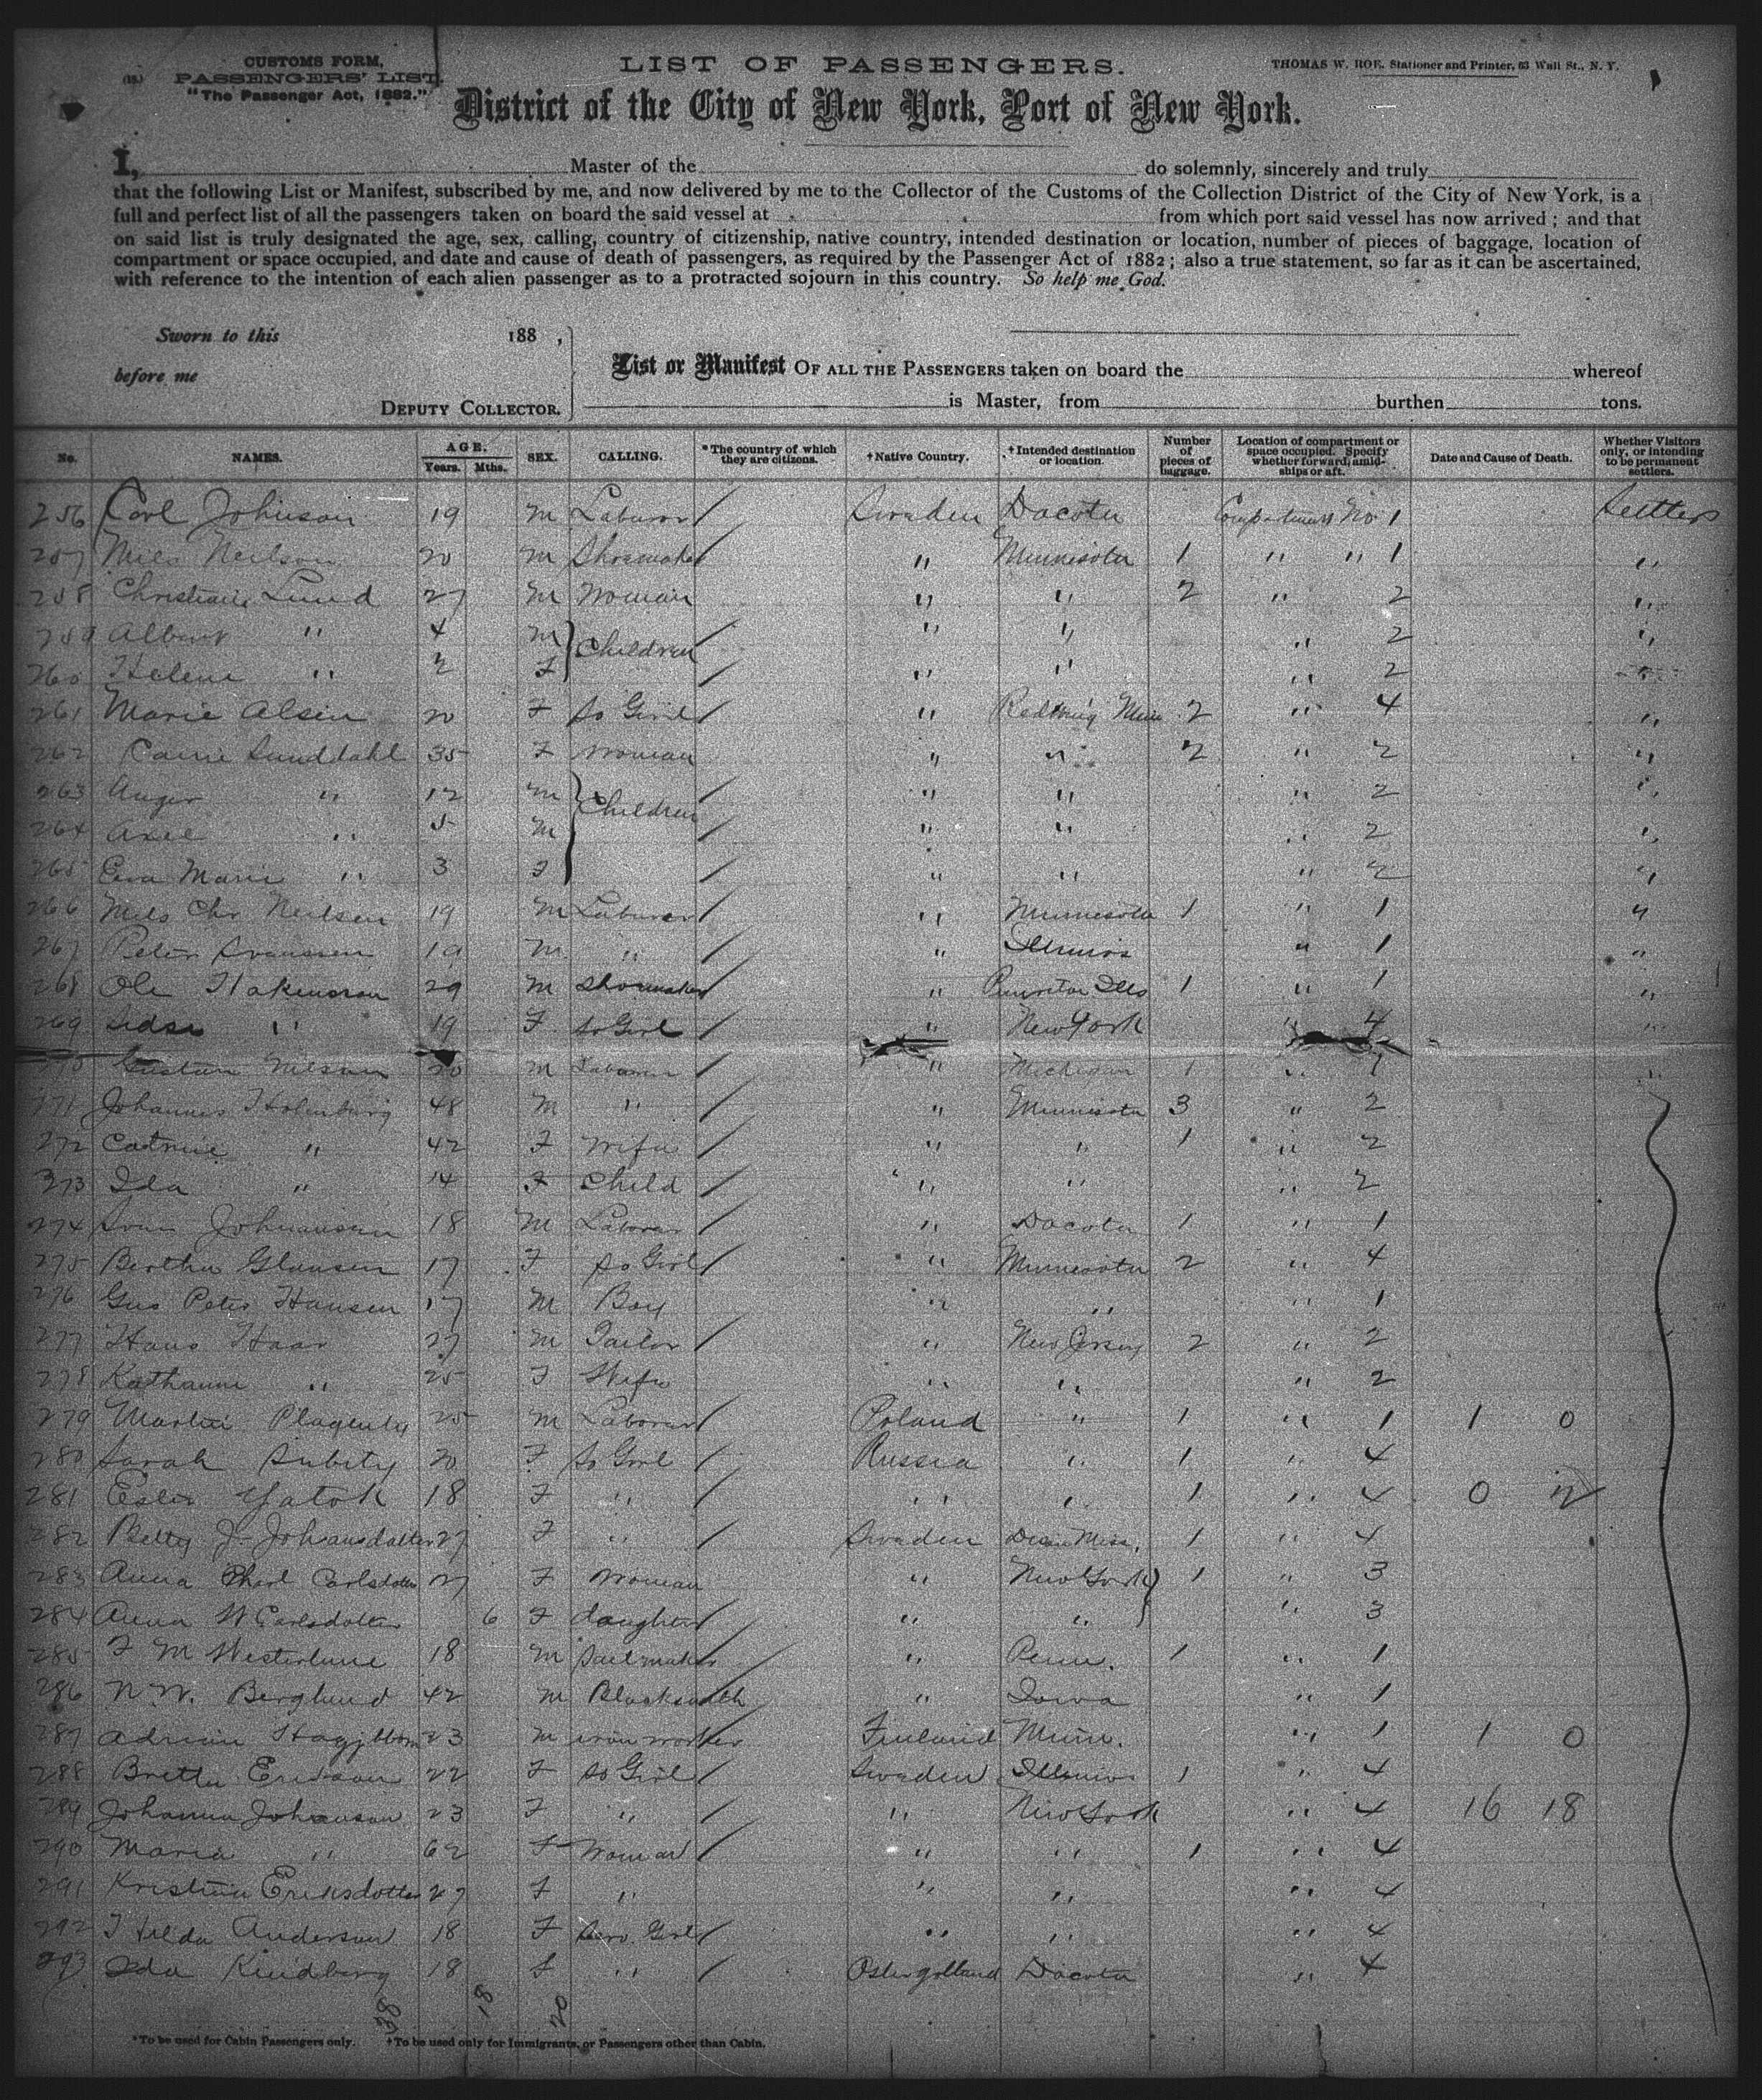 CUSTOMS FORM,
(15.) PASSENGERS' LIST.
"The Passenger Act, 1882."
LIST OF PASSENGERS.
THOMAS W. ROE, Stationer and Printer, 63 Wall St., N. Y.
District of the City of New York, Port of New York.
I, Master of the do solemnly, sincerely and truly
that the following List or Manifest, subscribed by me, and now delivered by me to the Collector of the Customs of the Collection District of the City of New York, is a
full and perfect list of all the passengers taken on board the said vessel at from which port said vessel has now arrived; and that
on said list is truly designated the age, sex, calling, country of citizenship, native country, intended destination or location, number of pieces of baggage, location of
compartment or space occupied, and date and cause of death of passengers, as required by the Passenger Act of 1882; also a true statement, so far as it can be ascertained,
with reference to the intention of each alien passenger as to a protracted sojourn in this country. So help me God.
Sworn to this 188 ,
before me
DEPUTY COLLECTOR.
List or Manifest OF ALL THE PASSENGERS taken on board the whereof
is Master, from burthen tons.
No. NAMES. AGE. Years. Mths. SEX. CALLING. *The country of which they are citizens. †Native Country. †Intended destination or location. Number of pieces of baggage. Location of compartment or space occupied. Specify whether forward, amidships or aft. Date and Cause of Death. Whether Visitors only, or intending to be permanent settlers.
256 Carl Johnson 19 M Laborer / Sweden Dacota Compartment No 1 Settlers
257 Nils Neilson 20 M Shoemaker / " Minnesota 1 " " 1 "
258 Christiane Lund 27 M Woman " " 2 " 2 "
259 Albert " 4 M Children / " " " 2 "
260 Helene " 2 F / " " " 2 "
261 Marie Olsen 20 F So Girl / " Redwing Minn 2 " 4 "
262 Carrie Sunddahl 35 F Woman " " 2 " 2 "
263 " 12 M Children / " " " 2 "
264 Axel " 5 M / " " " 2 "
265 Eva Marie " 3 F / " " " 2 "
266 Nils Chr Neilsen 19 M Laborer / " Minnesota 1 " 1 "
267 Peter Svenssen 19 M " / " Illinois " 1 "
268 Ole Hakenson 29 M Shoemaker / " Ills 1 " 1 "
269 " 19 F So Girl / " New York " 4 "
270 Gustav Nelson 20 M Laborer / " Michigan 1 " 1 "
271 Johannes Holenburg 48 M " / " Minnesota 3 " 2
272 Catrine " 42 F Wife / " " 1 " 2
273 Ida " 14 F Child / " " " 2
274 Sven Johnansen 18 M Laborer / " Dacota 1 " 1
275 Bertha Glausen 17 F So Girl / " Minnesota 2 " 4
276 Gus Peter Hansen 17 M Boy " " " 1
277 Hans Haar 27 M Tailor / " New Jersey 2 " 2
278 Kathanne " 25 F Wife " " " 2
279 Martin 25 M Laborer / Poland " 1 " 1 1 0
280 Sarah Subity 20 F So Girl / Russia " 1 " 4
281 Ester Yatok 18 F " / " " 1 " 4 0 2
282 Betty J. Johansdotter 27 F " / Sweden 1 " 4
283 Anna Carlsdotter 27 F Woman " New York 1 " 3
284 Anna W Carlsdotter 6 F daughter / " " " 3
285 F M Westerlune 18 M Sailmaker / " Penn. 1 " 1
286 N. W. Berglund 42 M Blacksmith / " Iowa " 1
287 Adrian 23 M iron worker / Finland Minn. " 1 1 0
288 Bretta Erikson 22 F So Girl / Sweden Illinois 1 " 4
289 Johanna Johanson 23 F " / " New York " 4 16 18
290 Maria " 62 F Woman / " " 1 " 4
291 Kristina Eriksdotter 27 F " " " " 4
292 Hilda Anderson 18 F Serv. Girl / " " " 4
293 Ida Kindberg 18 F " / Ostergotland Dacota " 4
38 18 20
*To be used for Cabin Passengers only. †To be used only for Immigrants, or Passengers other than Cabin.